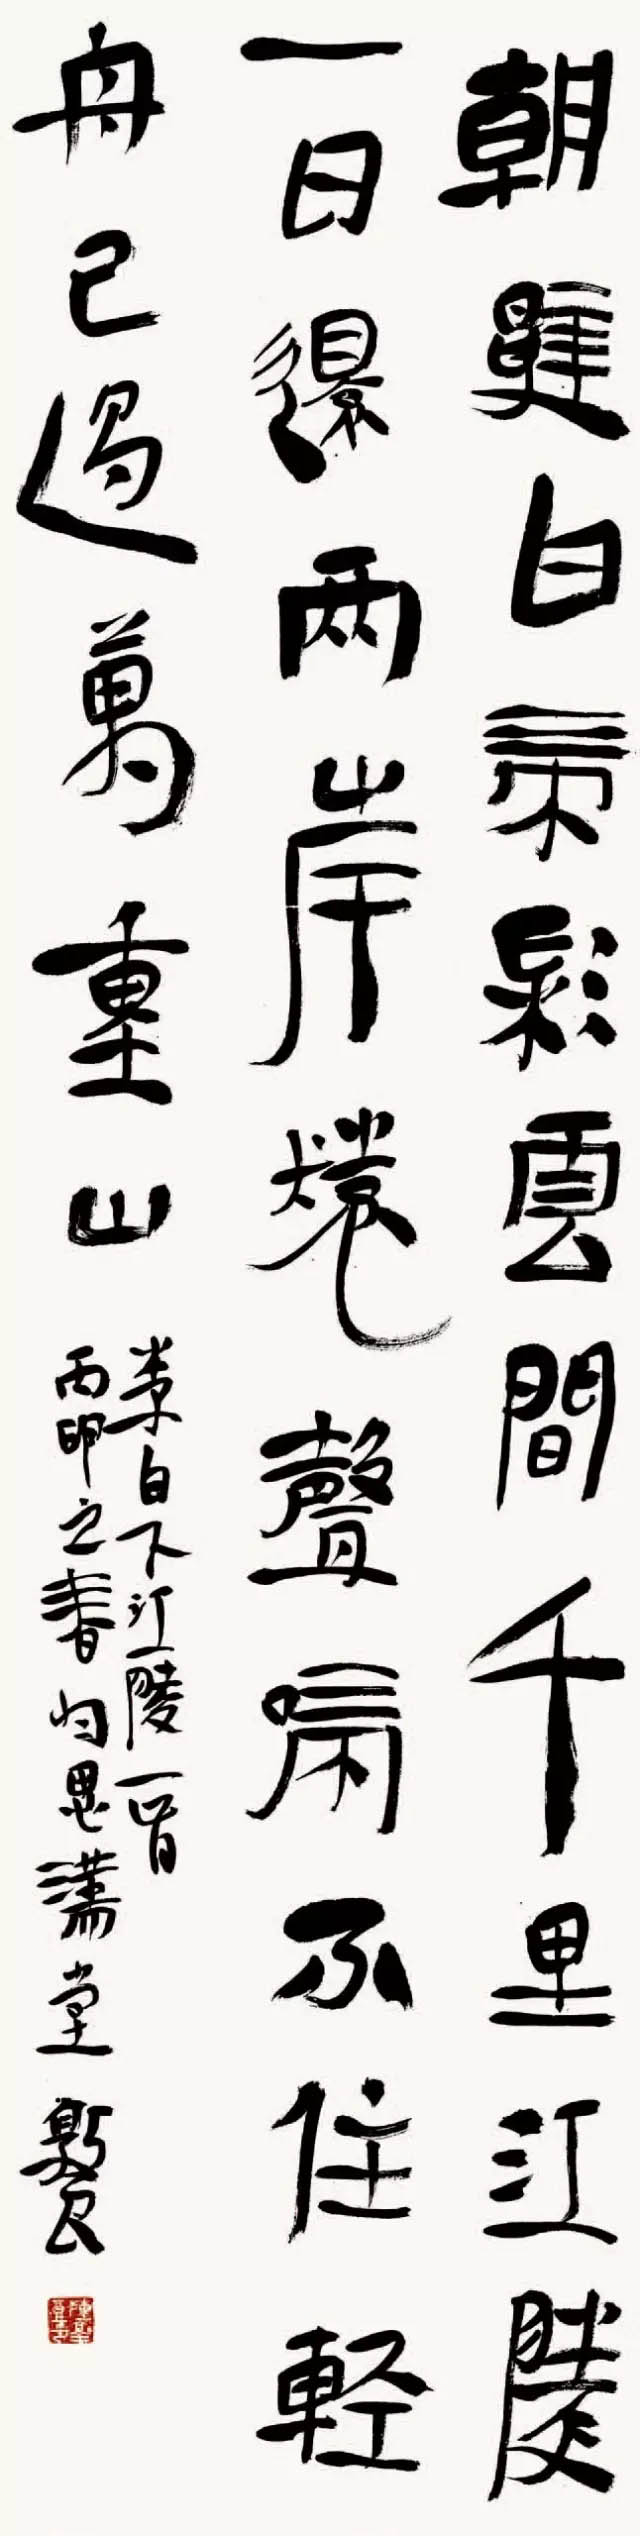 朝辭白帝彩雲間千里江陵
一日還两岸猿聲啼不住輕
舟已過萬重山
李白下江陵一首
丙申之春 堂